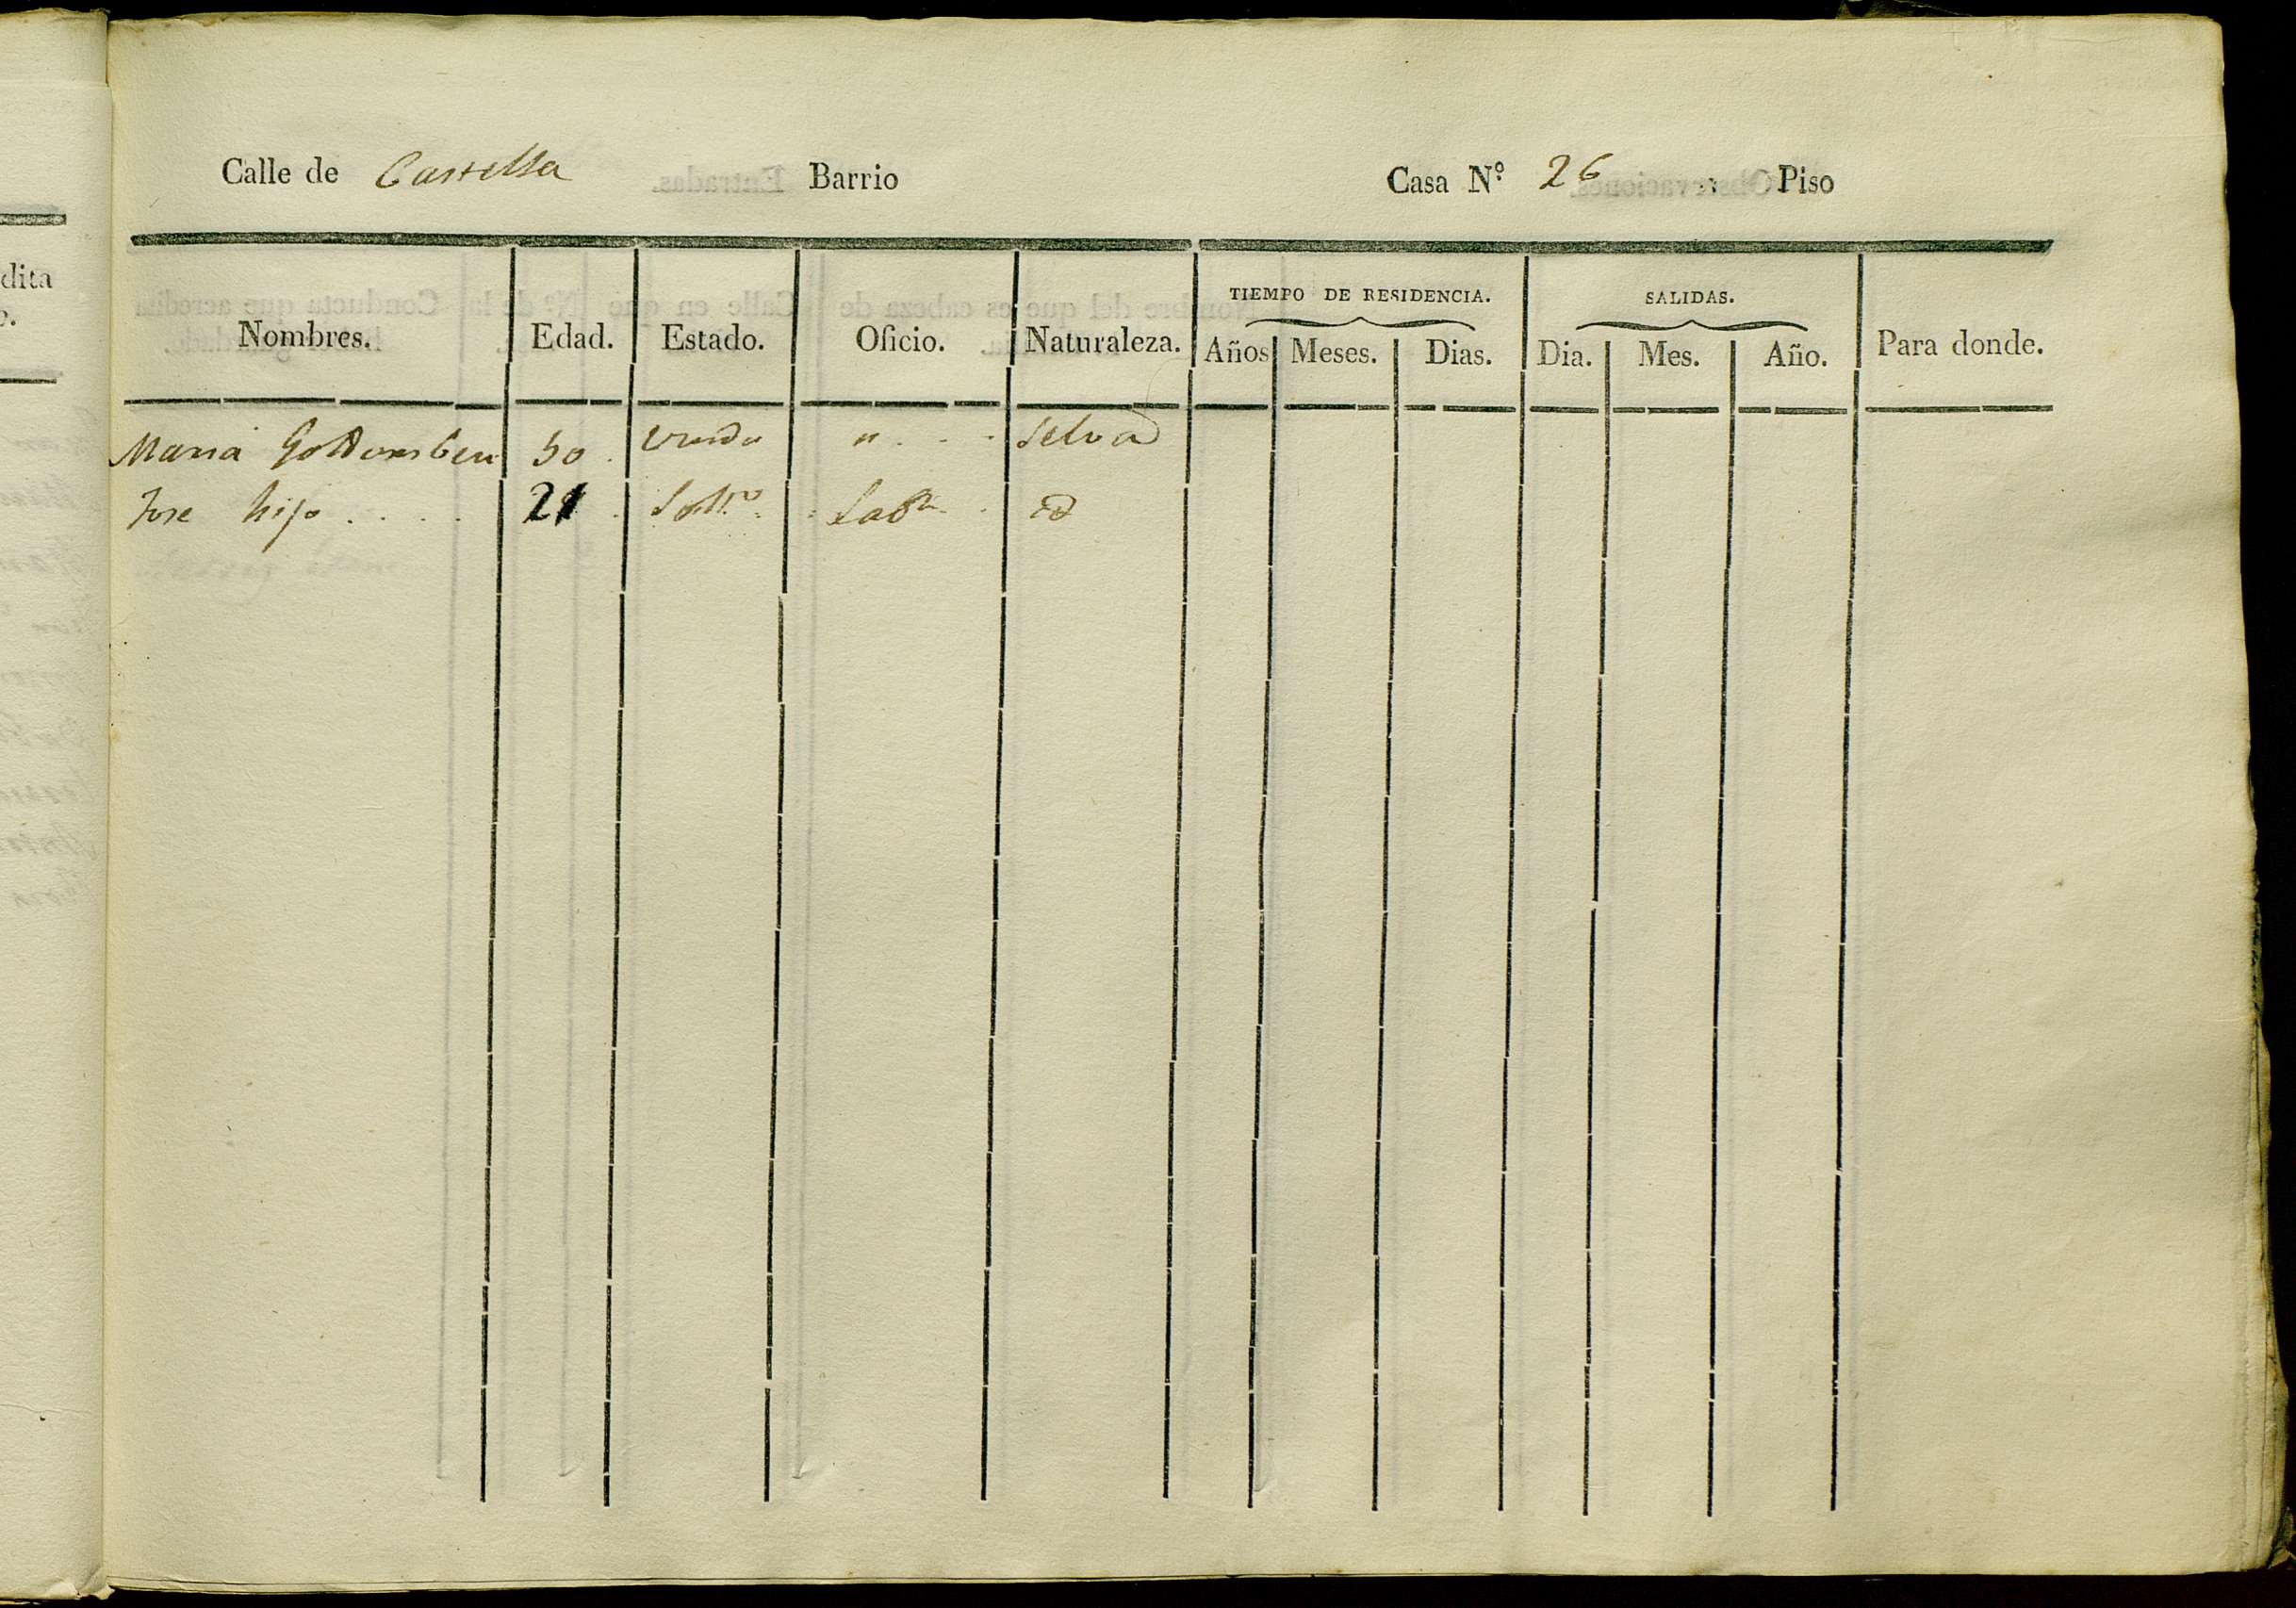 dita
Calle de Castella Barrio Casa Nº 26 Piso
TIEMPO DE RESIDENCIA. SALIDAS.
Nombres. Edad. Estado. Oficio. Naturaleza. Años Meses. Dias. Dia. Mes. Año. Para donde.
Maria 50 Viuda " Selva
Jose hijo 21 Soltº Labr id